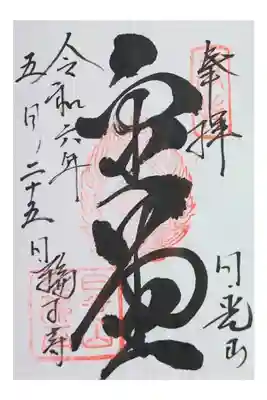 奉拝
日光山
金堂
令和六年
五月二十五日
輪王寺